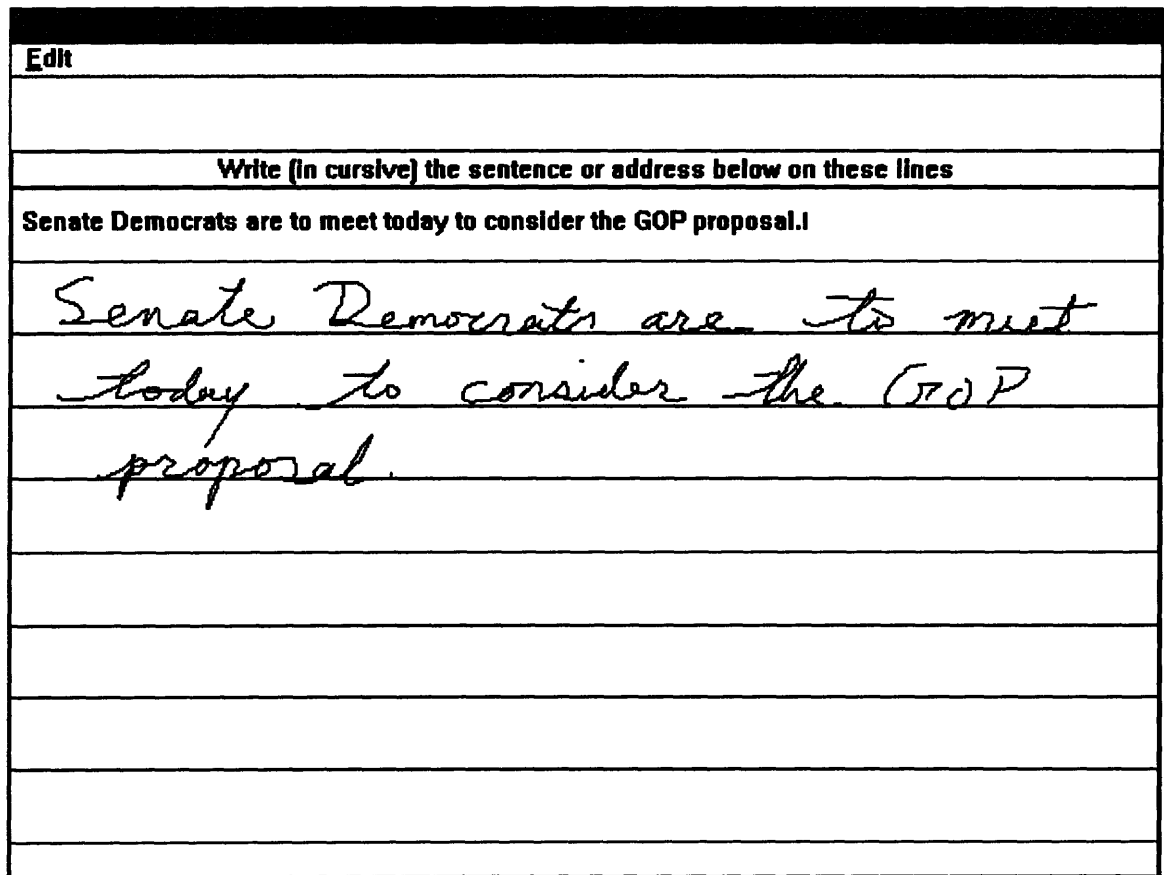 Edit
Write (in cursive) the sentence or address below on these lines
Senate Democrats are to meet today to consider the GOP proposal.
Senate Democrats are to meet
today to consider the GOP
proposal.